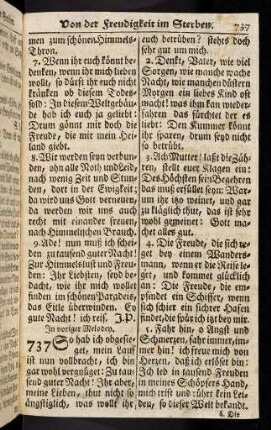 Von der Freudigkeit im Sterben. 737
men zum schönen Himmels-
Thron.
7. Wenn ihr euch könnt be-
dencken, wenn ihr mich lieben
wollt, so dürft ihr euch nicht
kräncken ob diesem Todes-
fold: In diesem Weltgebäu-
de hab ich euch ja geliebt:
Drum gönnt mir doch die
Freude, die mir mein Hey-
land giebt.
8. Wir werden seyn verbun-
den, ohn alle Noth und Leid,
nach wenig Zeit und Stun-
den, dort in der Ewigkeit;
da wird uns Gott verneuen,
da werden wir uns auch
recht mit einander freuen,
nach Himmelischen Brauch.
9. Ade! nun muß ich schei-
den zu tausend guter Nacht!
Zur Himmelslust und Freu-
den: Ihr Liebsten, seyd be-
dacht, wie ihr mich möget finden
im schönen Paradeis,
das Eitle überwinden. Ey
gute Nacht! ich reis. J. P.
In voriger Melodey.
737 So hab ich obgesie-
get, mein Lauf
ist nun vollbracht, ich bin
gar wohl vergnüget: Zu tau-
send guter Nacht! Ihr aber,
meine Lieben, thut nicht so
ängstiglich, was wollt ihr
euch betrüben? stehts doch
sehr gut um mich.
2. Denckt, Vater, wie viel
Sorgen, wie manche wache
Nacht, wie manchen düstern
Morgen ein liebes Kind oft
macht! was ihm kan wieder-
fahren das fürchtet der es
liebt: Den Kummer könnt
ihr sparen, drum seyd nicht
so betrübt.
3. Ach Mutter! laßt die Zäh-
ren, stellt euer Klagen ein:
Des Höchsten sein Begehren
das muß erfüllet seyn: War-
um ihr itzo weinet, und gar
zu kläglich thut, das ist sehr
wohl gemeinet: Gott ma-
chet alles gut.
4. Die Freude, die sich re-
get bey einem Wanders-
mann, wenn er die Reis ble-
get, und kommet glücklich
an: Die Freude, die em-
pfindet ein Schiffer, wenn
sich schier ein sichrer Hafen
findet, die spür ich itzt bey mir.
5. Fahr hin, o Angst und
Schmertzen, fahr immer, im-
merhin, ich freue mich im
Hertzen, daß ich erlöset bin:
Ich led in tausend Freuden
in meines Schöpfers Hand,
mich trift und rührt kein Lei-
den, so dieser Welt bekandt.
6. Die